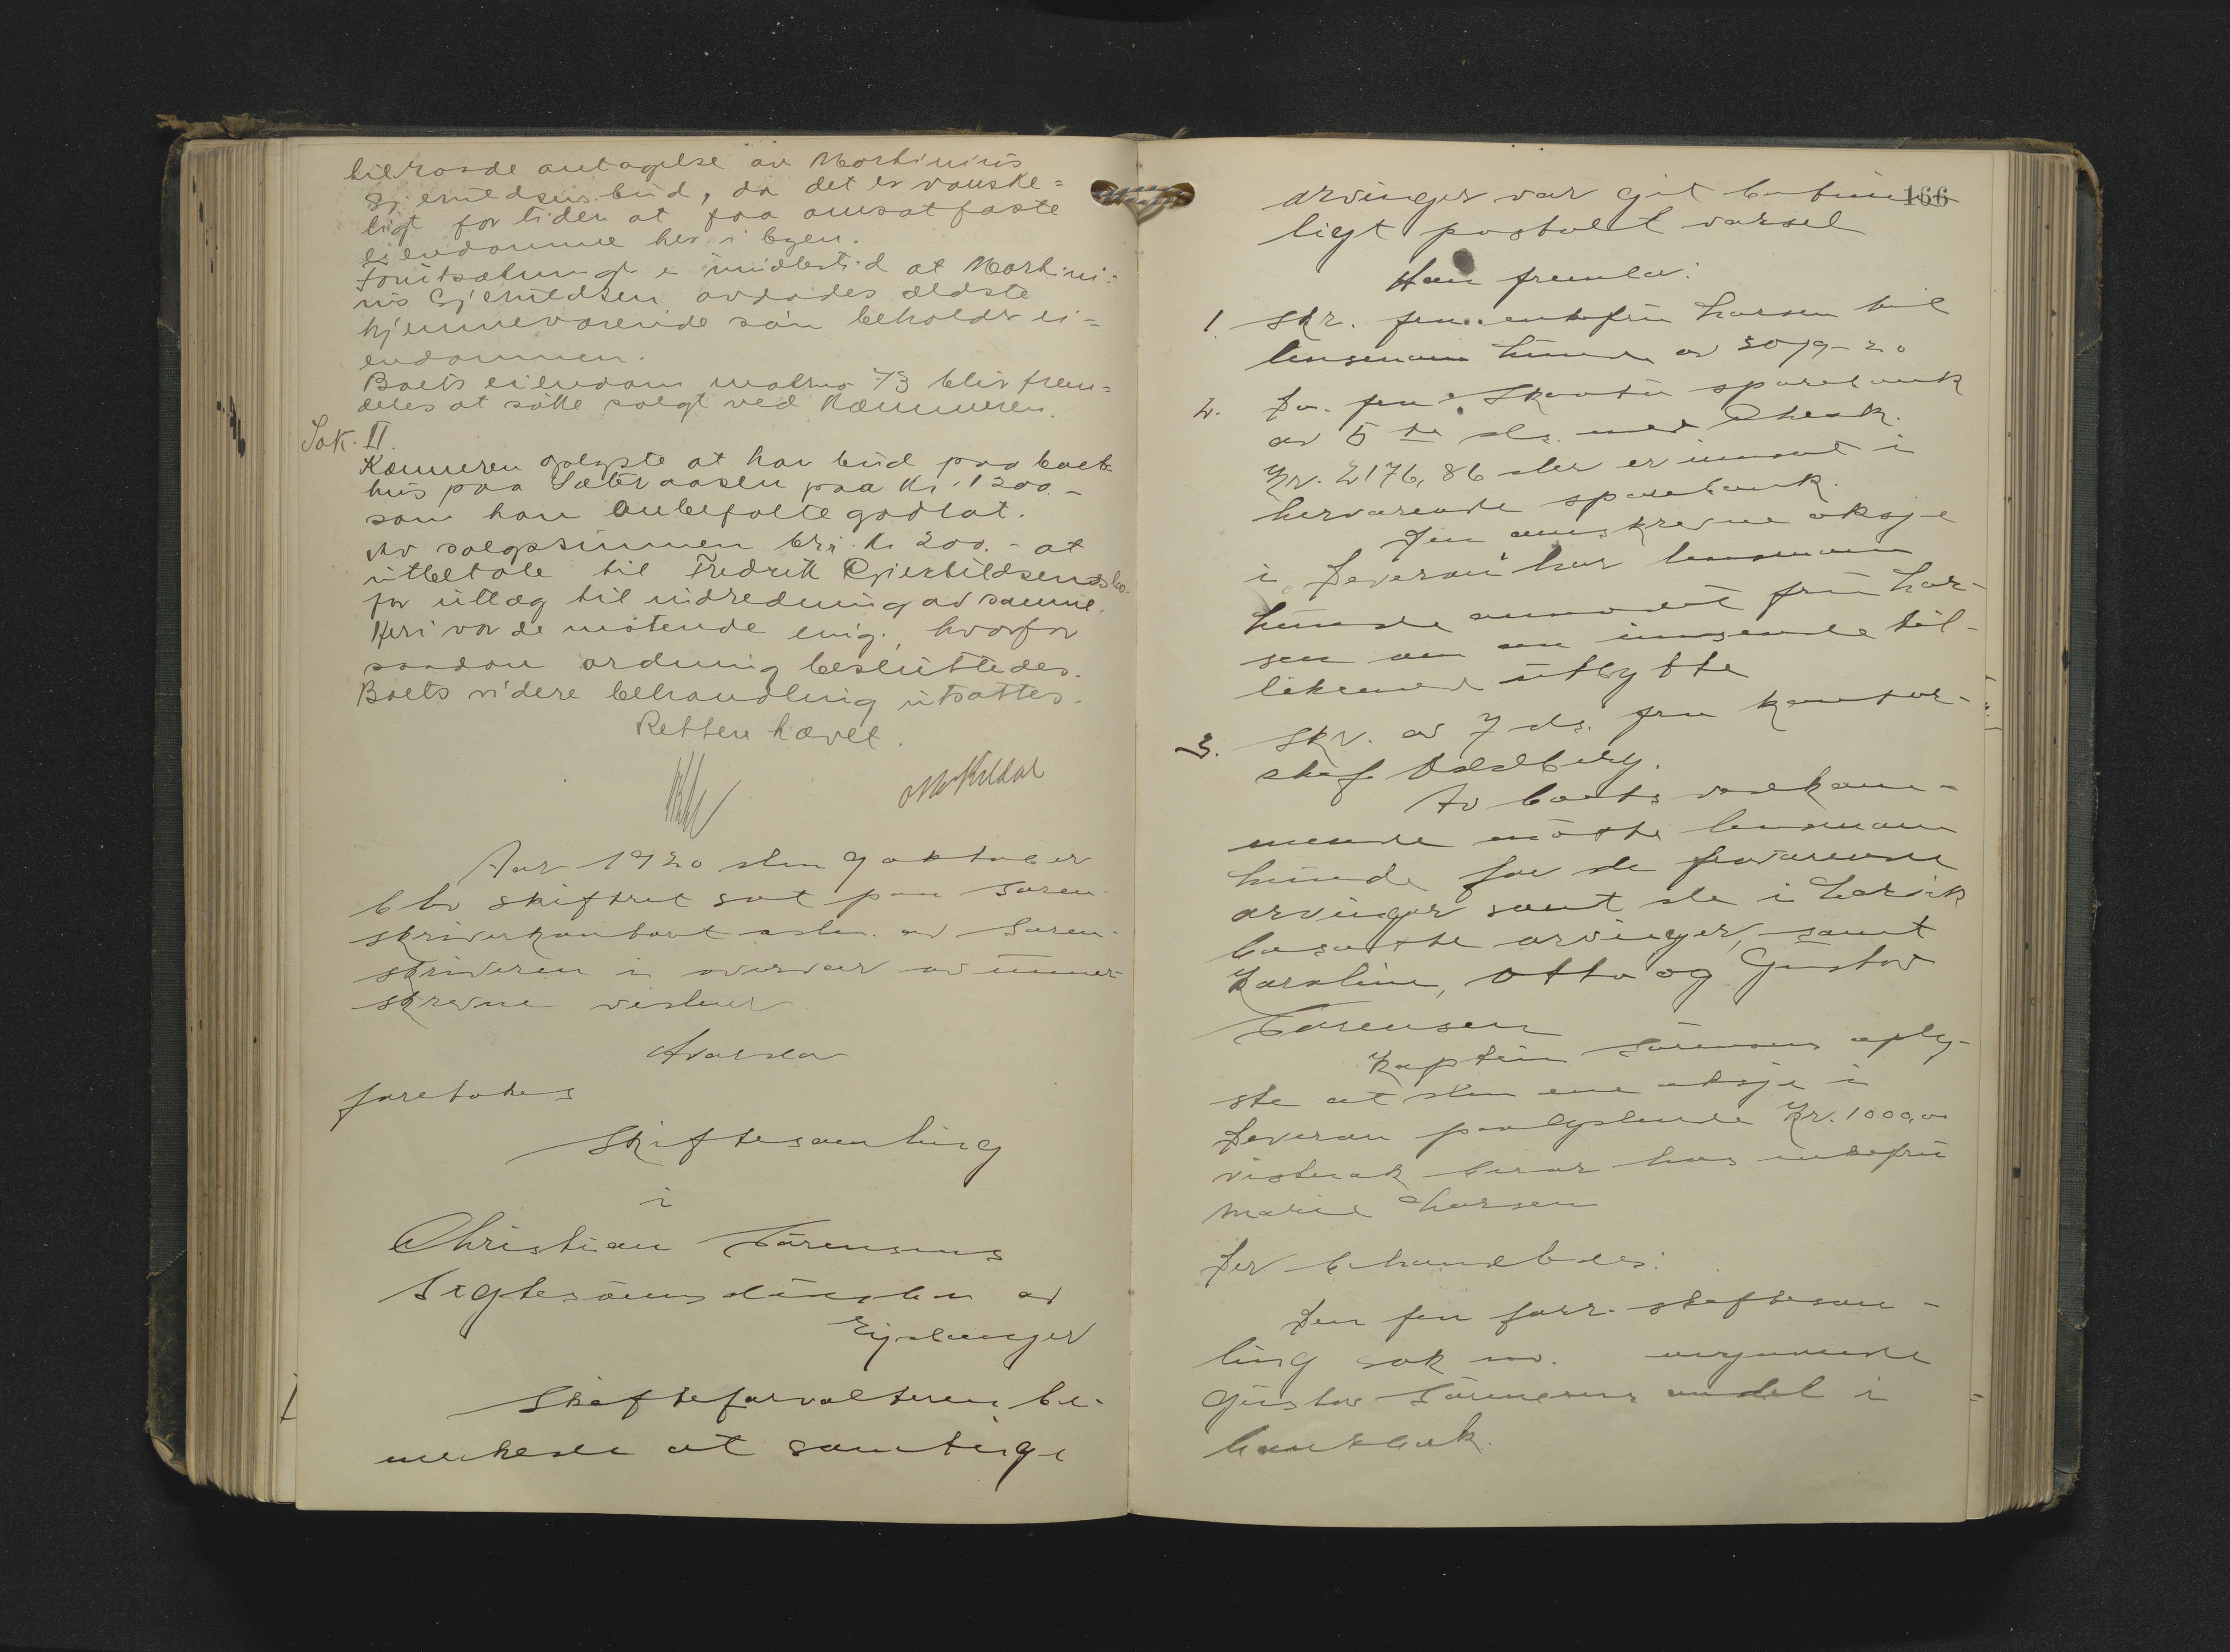 tilraade antagelse av Martinius
Gjeruldsens bud, da det er vanske=
ligt for tiden at faa omsat faste
eiendomme her i byen.
Forutsætning er imidlertid at Martini-
us Gjeruldsen avdødes ældste
hjemmeværende søn beholder ei=
endommen.
Boets eiendom matrno 73 blir frem=
deles at søke solgt ved Kæmneren.
Sak. II.
Kæmneren oplyste at ha bud paa boets
hus paa Sæteraasen paa Kr. 1200.-
som han anbefalte godtat.
Av salgssummen blir Kr 200.- at
utbetale til Fredrik Gjerulldsens bo
for utlæg til indredning av samme.
Heri var de møtende enig, hvorfor
saadan ordning besluttedes.
Boets videre behandling utsattes.
Retten hævet.
Aar 1920 den 9 oktober
blev skifteret sat paa Soren-
skriverkontoret av Soren-
skriveren i overvær av under-
skrevne vidner
Hvorda
foretokes
Skiftesamling
i
Christian Sørensens
Sigtesøns dødsbo av
Eidanger
Skifteforvalteren be-
merkede at samtlige
166
arvinger var git betime-
ligt postalt varsel
Han fremla:
1 Skr. fra enkefru Larsen til
lensmann Lunde av 30/9-20
2. Do. fra Skaatø sparebank
av 5te ds. med Check
Kr. 2176,86 der er innsat i
herværende sparebank.
Den omskrevne aksje
i "Deveron" har lensmann
Lunde anmodet fru Lar-
sen om at innsende til-
likemed utbytte
3. Skr. av 7 ds. fra kontor-
chef Oddberg.
Av boets vedkom-
mende møtte lensmann
Lunde for de fraværende
arvinger samt de i Larvik
bosatte arvinger, samt
Karoline, Otto og Gustav
Sørensen
Kaptein Sørensen oply-
ste at den ene aksje i
Deveron paalydende Kr. 1000,00
vistnok beror hos enkefru
Marie Larsen
Der behandledes:
Den fra forr. skiftesam-
ling sak no. angaaende
Gustav Sørensens andel i
bankbok.